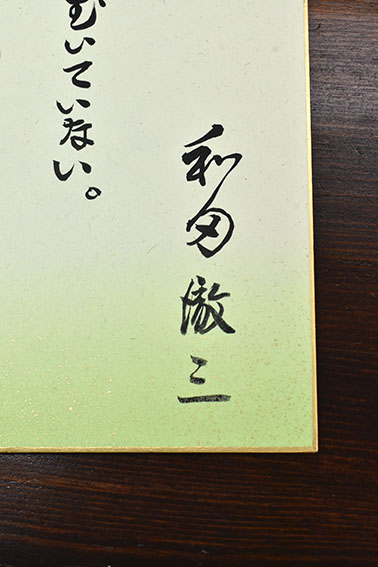 和田徹三
むいていない。